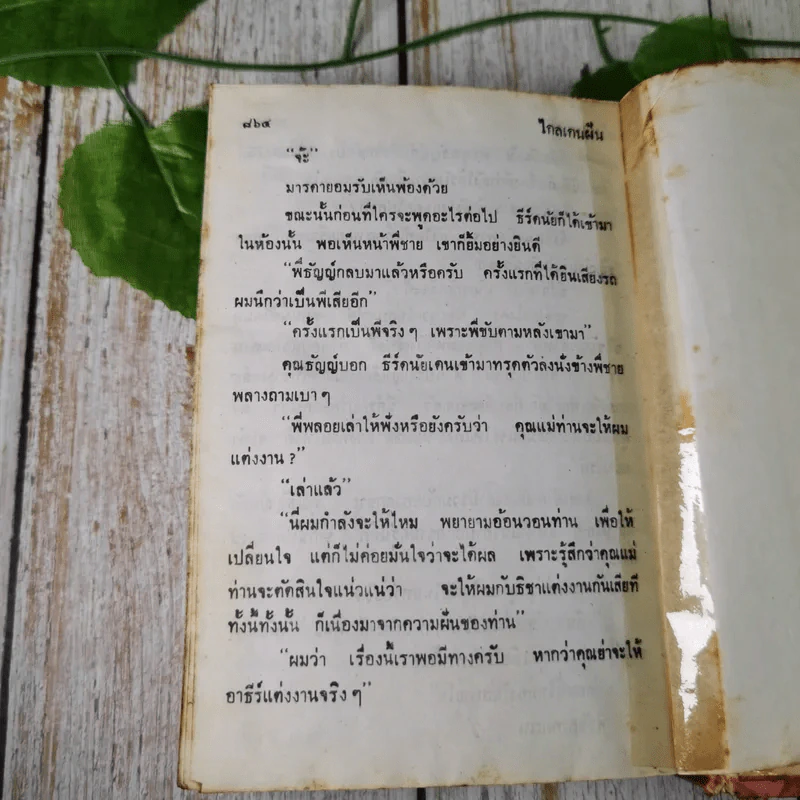 ๘๖๔ ไกลเกนฝัน
"จ้ะ"
มารดายอมรับเห็นพ้องด้วย
ขณะนั้นก่อนที่ใครจะพูดอะไรต่อไป ธีร์ดนัยก็ได้เข้ามา
ในห้องนั้น พอเห็นหน้าพี่ชาย เขาก็ยิ้มอย่างยินดี
"พี่ธัญญ์กลบมาแล้วหรือครับ ครั้งแรกที่ได้ยินเสียงรถ
ผมนึกว่าเป็นพี่เสียอีก"
"ครั้งแรกเป็นพี่จริง ๆ เพราะพี่ขับตามหลังเขามา"
คุณธัญญ์บอก ธีร์ดนัยเดนเข้ามาทรุดตัวลงนั่งข้างพี่ชาย
พลางถามเบา ๆ
"พี่พลอยเล่าให้ฟังหรือยังครับว่า คุณแม่ท่านจะให้ผม
แต่งงาน ?"
"เล่าแล้ว"
"นี่ผมกำลังจะให้ไหม พยายามอ้อนวอนท่าน เพื่อให้
เปลี่ยนใจ แต่ก็ไม่ค่อยมั่นใจว่าจะได้ผล เพราะรู้สึกว่าคุณแม่
ท่านจะตัดสินใจแน่วแน่ว่า จะให้ผมกับธิชาแต่งงานกันเสียที
ทั้งนี้ทั้งนั้น ก็เนื่องมาจากความฝันของท่าน"
"ผมว่า เรื่องนี้เราพอมีทางครับ หากว่าคุณย่าจะให้
อาธีร์แต่งงานจริง ๆ"